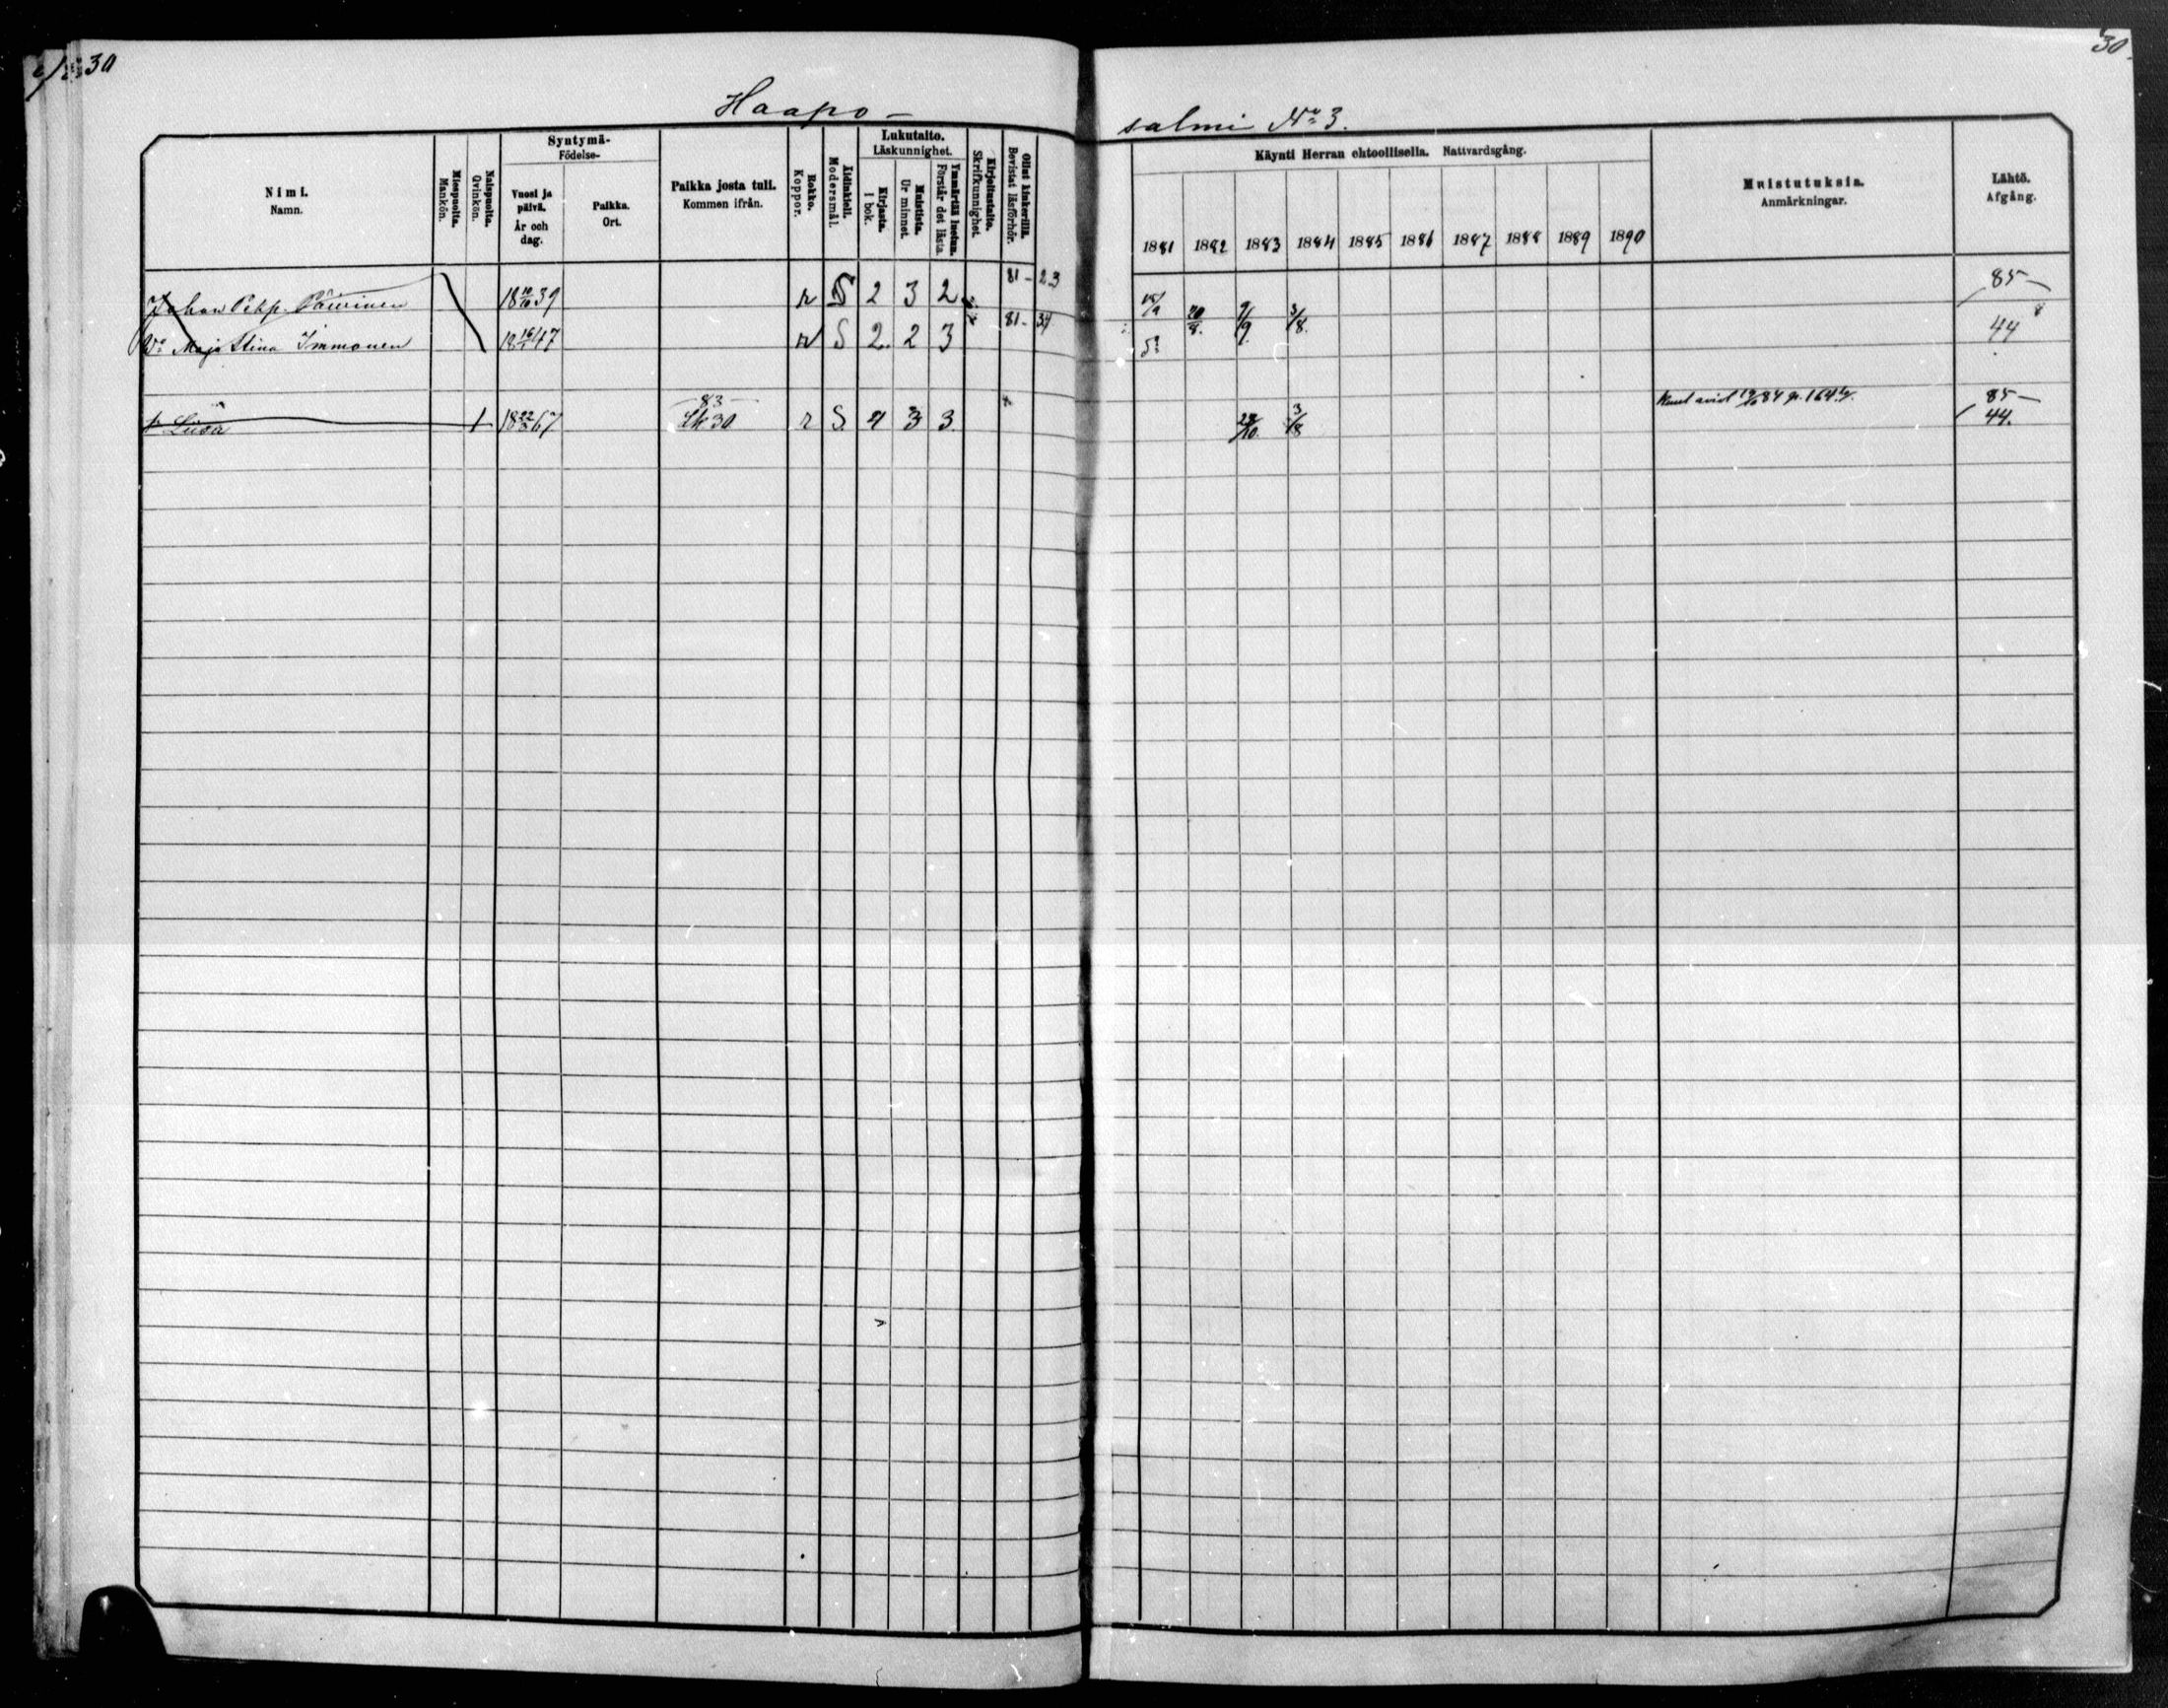 30
30.
Haapo- salmi No 3.
Nimi. Namn.
Miespuolta. Mankön.
Naispuolta. Qvinkön.
Syntymä- Födelse-
Vuosi ja päivä. År och dag.
Paikka. Ort.
Paikka josta tuli. Kommen ifrån.
Rokko. Koppor.
Äidinkieli. Modersmål.
Lukutaito. Läskunnighet.
Kirjasta. I bok.
Muistista. Ur minnet.
Ymmärtää luetun. Förstår det lästa
Kirjoitustaito. Skrifkunnighet.
Ollut kinkerillä. Bevistat läsförhör.
Käynti Herran ehtoollisella. Nattvardsgång.
1881 1882 1883 1884 1885 1886 1887 1888 1889 1890
Muistutuksia. Anmärkningar.
Lähtö. Afgång.
Johan 1839 S 2 3 2 81-23 3/8. 85
Maja Stina Immonen 18 16/1 47 S 2. 2 3 81- 44
83
Liisa 18 22 67 Sk 30 r S. 4 3 3. 3/8 85
44.